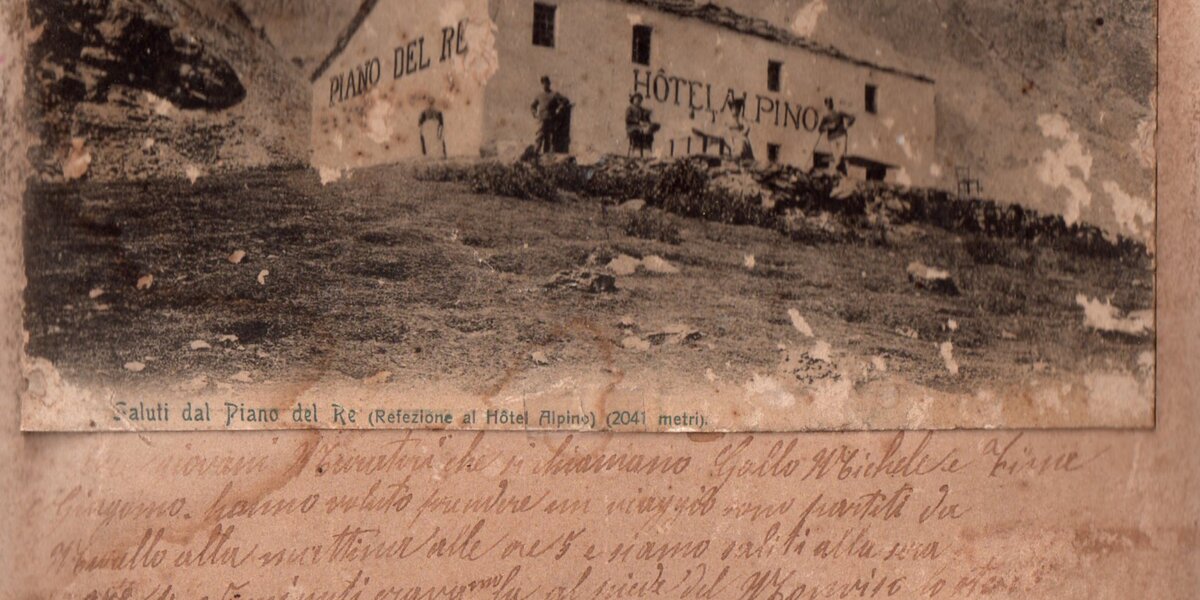 PIANO DEL RE
HÔTEL ALPINO
Saluti dal Piano del Re (Refezione al Hôtel Alpino) (2041 metri).
giovani Muratori che si chiamano Gallo Michele e
hanno voluto prendere un viaggio sono partiti da
alla mattina alle ore 5 e siamo saliti alla sera
minuti al piede del Monviso